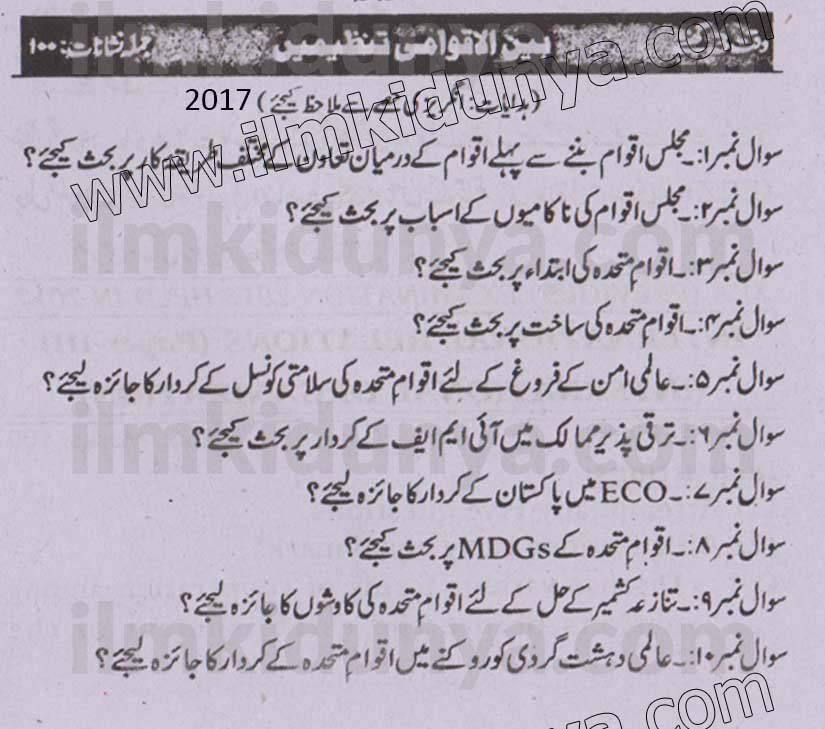 بین الاقوامی تنظیمیں جملہ نشانات: ۱۰۰
(ہدایات: انگریزی حصے سے ملاحظہ کیجئے) 2017
سوال نمبر۱:۔ مجلس اقوام بننے سے پہلے اقوام کے درمیان تعاون کے مختلف طریقہ کار پر بحث کیجئے؟
سوال نمبر۲:۔ مجلس اقوام کی ناکامیوں کے اسباب پر بحث کیجئے؟
سوال نمبر۳:۔ اقوام متحدہ کی ابتداء پر بحث کیجئے؟
سوال نمبر۴:۔ اقوام متحدہ کی ساخت پر بحث کیجئے؟
سوال نمبر۵:۔ عالمی امن کے فروغ کے لئے اقوامِ متحدہ کی سلامتی کونسل کے کردار کا جائزہ لیجئے؟
سوال نمبر۶:۔ ترقی پذیر ممالک میں آئی ایم ایف کے کردار پر بحث کیجئے؟
سوال نمبر۷:۔ ECO میں پاکستان کے کردار کا جائزہ لیجئے؟
سوال نمبر۸:۔ اقوامِ متحدہ کے MDGs پر بحث کیجئے؟
سوال نمبر۹:۔ تنازعہ کشمیر کے حل کے لئے اقوامِ متحدہ کی کاوشوں کا جائزہ لیجئے؟
سوال نمبر۱۰:۔ عالمی دہشت گردی کو روکنے میں اقوامِ متحدہ کے کردار کا جائزہ لیجئے؟
www.ilmkidunya.com
ilmkidunya.com
ilmkidunya.com
ilmkidunya.com
ya.com